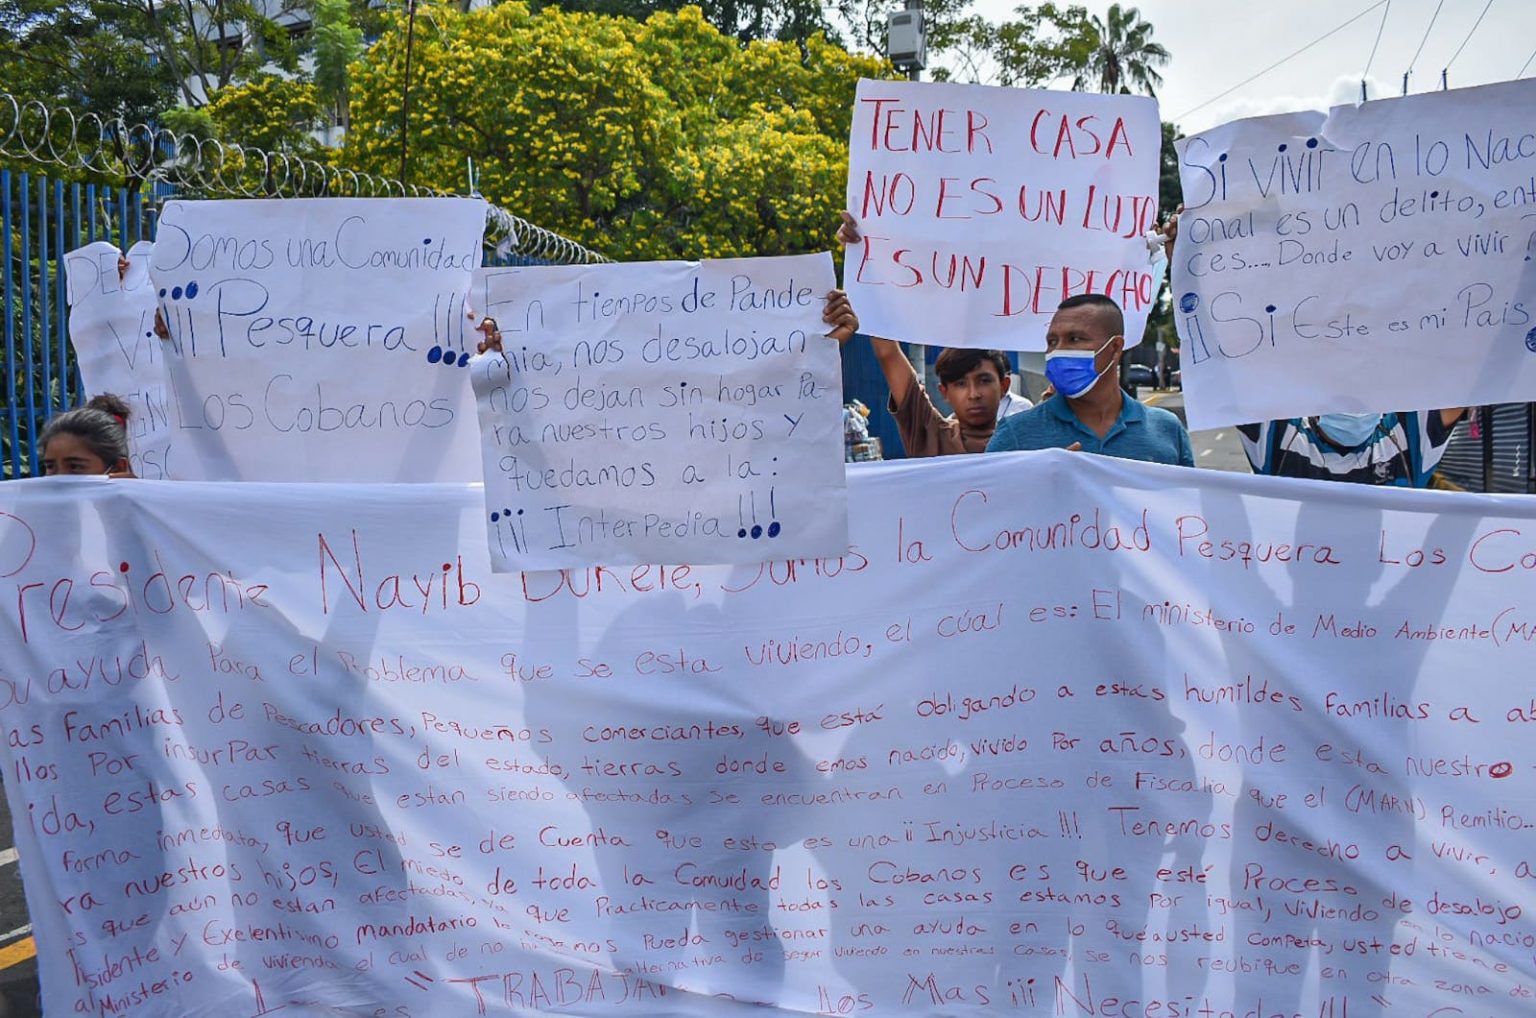 Somos una Comunidad
¡¡¡ Pesquera !!!
Los Cobanos
En tiempos de Pande-
mia, nos desalojan
nos dejan sin hogar Pa-
ra nuestros hijos y
quedamos a la:
¡¡¡ InterPedia !!!
TENER CASA
NO ES UN LUJO
ES UN DERECHO
Si vivir en lo Naci
onal es un delito, en
ces.... Donde voy a vivir ?
¡Si Este es mi Pais
Presidente Nayib Bukele, Somos la Comunidad Pesquera Los Co
su ayuda Para el Problema que se esta viviendo, el cúal es: El ministerio de Medio Ambiente (MA
as Familias de Pescadores, Pequeños comerciantes, que está obligando a estás humildes familias a ab
llos Por insurPar tierras del estado, tierras donde emos nacido, vivido Por años, donde esta nuestro
ida, estas casas que estan siendo afectadas se encuentran en Proceso de Fiscalia que el (MARN) Remitio..
forma inmediata, que usted se de Cuenta que esto es una ¡¡ Injusticia !!! Tenemos derecho a vivir, a
ra nuestros hijos, El miedo de toda la Comuidad los Cobanos es que esté Proceso de desalojo
s que aún no estan afectadas, ya que Practicamente todas las casas estamos Por igual, viviendo en lo nacio
sidente y Exelentisimo mandatario lo que Pueda gestionar una ayuda en lo que a usted competa, usted tiene
al Ministerio de vivienda el cual de no alternativa de seguir viviendo en nuestras casas, se nos reubique en otra zona de
es "TRABAJAR los Mas ¡¡¡ Necesitados !!! "